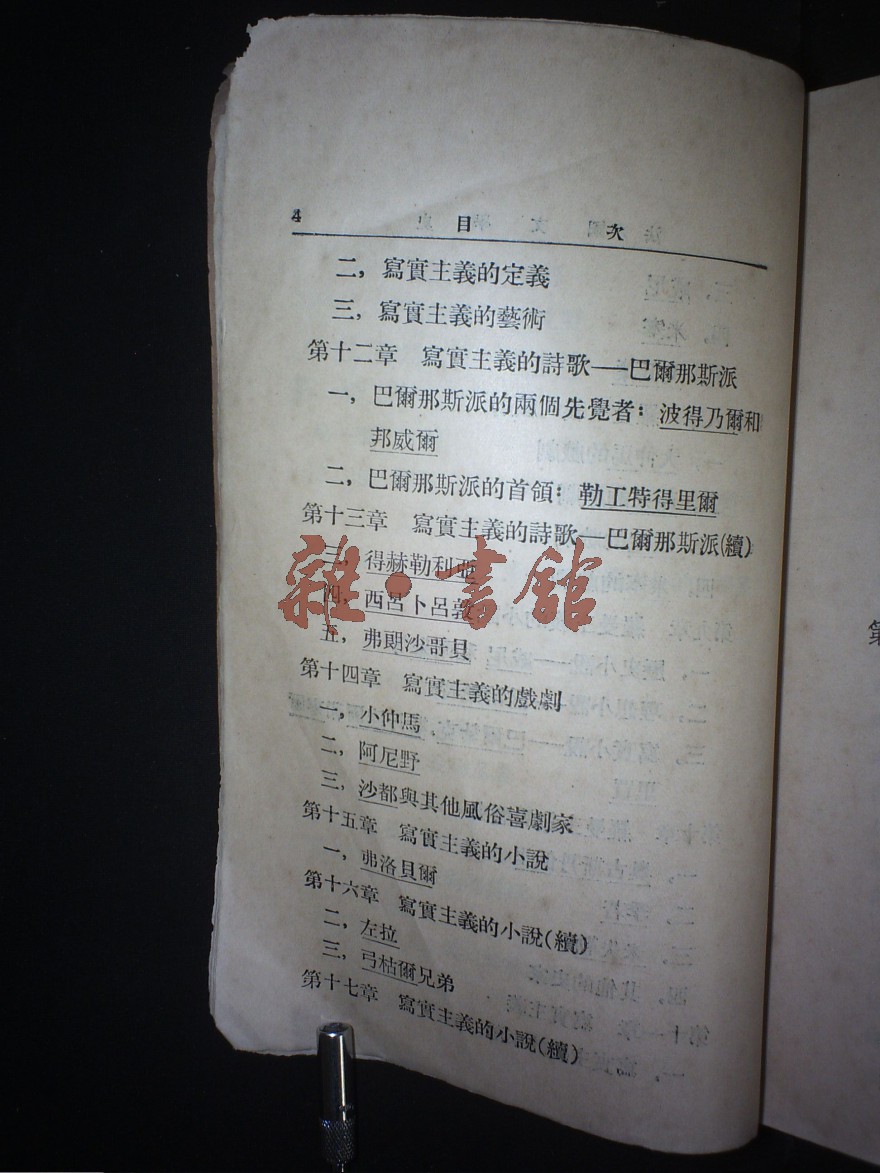 4 目 次
二，寫實主義的定義
三，寫實主義的藝術
第十二章 寫實主義的詩歌——巴爾那斯派
一，巴爾那斯派的兩個先覺者：波得乃爾和
邦威爾
二，巴爾那斯派的首領：勒工特得里爾
第十三章 寫實主義的詩歌——巴爾那斯派(續)
三，得赫勒利亞
四，西呂卜呂敦
五，弗朗沙哥貝
第十四章 寫實主義的戲劇
一，小仲馬
二，阿尼野
三，沙都與其他風俗喜劇家
第十五章 寫實主義的小說
一，弗洛貝爾
第十六章 寫實主義的小說(續)
二，左拉
三，弓枯爾兄弟
第十七章 寫實主義的小說(續)
雜·書館
第